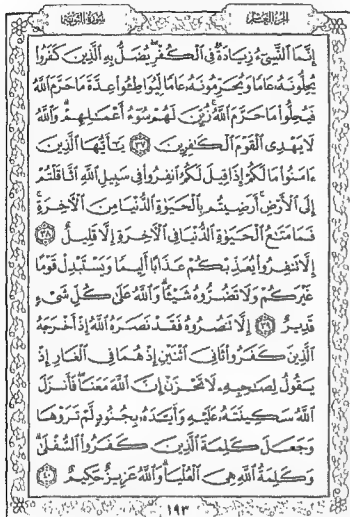 الجزء العاشر
سورة التوبة
إِنَّمَا ٱلنَّسِىٓءُ زِيَادَةٌ فِى ٱلْكُفْرِ يُضَلُّ بِهِ ٱلَّذِينَ كَفَرُوا۟
يُحِلُّونَهُۥ عَامًا وَيُحَرِّمُونَهُۥ عَامًا لِّيُوَاطِـُٔوا۟ عِدَّةَ مَا حَرَّمَ ٱللَّهُ
فَيُحِلُّوا۟ مَا حَرَّمَ ٱللَّهُ زُيِّنَ لَهُمْ سُوٓءُ أَعْمَـٰلِهِمْ وَٱللَّهُ
لَا يَهْدِى ٱلْقَوْمَ ٱلْكَـٰفِرِينَ ٣٧ يَـٰٓأَيُّهَا ٱلَّذِينَ
ءَامَنُوا۟ مَا لَكُمْ إِذَا قِيلَ لَكُمُ ٱنفِرُوا۟ فِى سَبِيلِ ٱللَّهِ ٱثَّاقَلْتُمْ
إِلَى ٱلْأَرْضِ أَرَضِيتُم بِٱلْحَيَوٰةِ ٱلدُّنْيَا مِنَ ٱلْـَٔاخِرَةِ
فَمَا مَتَـٰعُ ٱلْحَيَوٰةِ ٱلدُّنْيَا فِى ٱلْـَٔاخِرَةِ إِلَّا قَلِيلٌ ٣٨
إِلَّا تَنفِرُوا۟ يُعَذِّبْكُمْ عَذَابًا أَلِيمًا وَيَسْتَبْدِلْ قَوْمًا
غَيْرَكُمْ وَلَا تَضُرُّوهُ شَيْـًٔا وَٱللَّهُ عَلَىٰ كُلِّ شَىْءٍ
قَدِيرٌ ٣٩ إِلَّا تَنصُرُوهُ فَقَدْ نَصَرَهُ ٱللَّهُ إِذْ أَخْرَجَهُ
ٱلَّذِينَ كَفَرُوا۟ ثَانِىَ ٱثْنَيْنِ إِذْ هُمَا فِى ٱلْغَارِ إِذْ
يَقُولُ لِصَـٰحِبِهِۦ لَا تَحْزَنْ إِنَّ ٱللَّهَ مَعَنَا فَأَنزَلَ
ٱللَّهُ سَكِينَتَهُۥ عَلَيْهِ وَأَيَّدَهُۥ بِجُنُودٍ لَّمْ تَرَوْهَا
وَجَعَلَ كَلِمَةَ ٱلَّذِينَ كَفَرُوا۟ ٱلسُّفْلَىٰ
وَكَلِمَةُ ٱللَّهِ هِىَ ٱلْعُلْيَا وَٱللَّهُ عَزِيزٌ حَكِيمٌ ٤٠
١٩٣